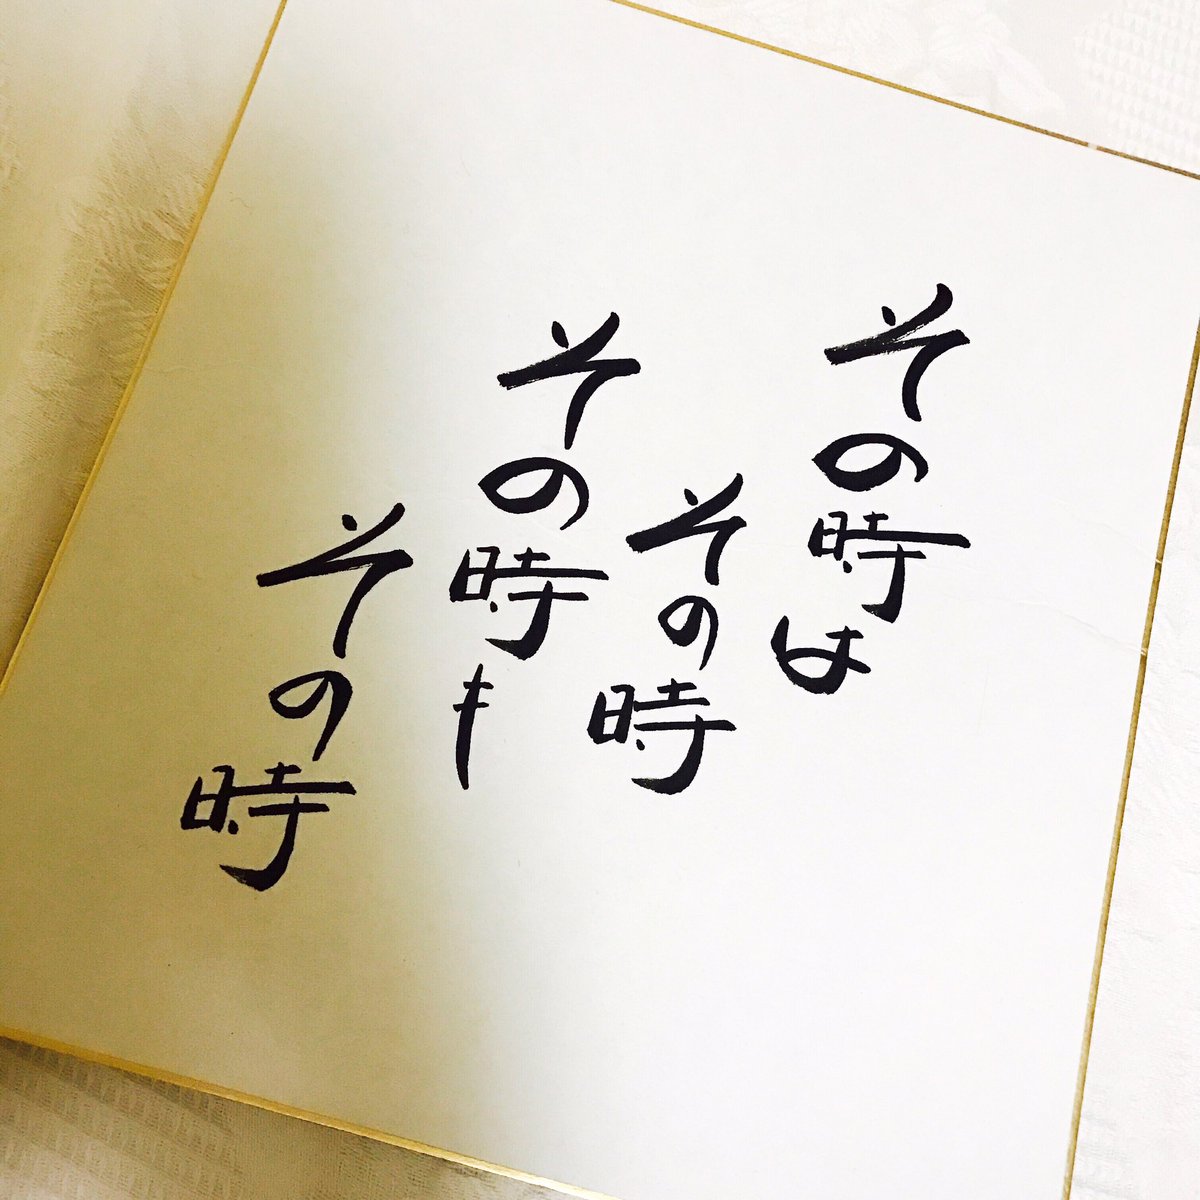 その時は
その時
その時も
その時